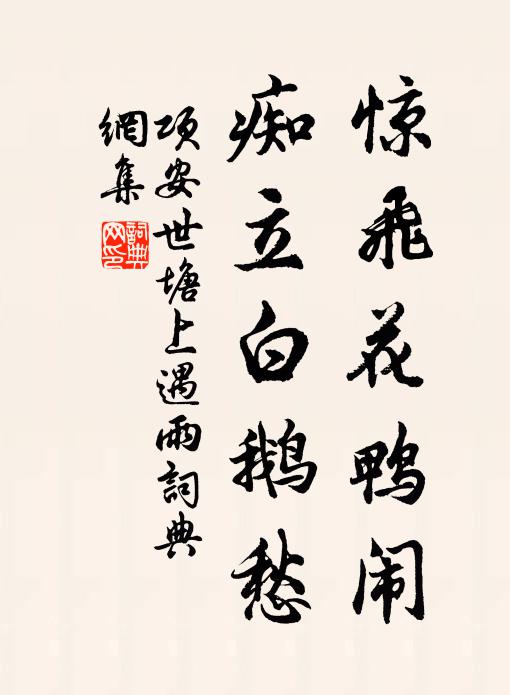 惊飛花鸭闹
痴立白鹅愁
项安世塘上遇雨詞典
網集
詞典
网印